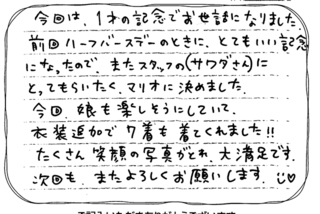 今回は、1才の記念でお世話になりました
前回ハーフバースデーのときに、とてもいい記念
になったので、またスタッフの(サワダさん)に
とってもらいたく、マリオに決めました。
今回、娘も楽しそうにしていて、
衣装追加で7着も着てくれました!!
たくさん笑顔の写真がとれ、大満足です。
次回も、またよろしくお願いします。